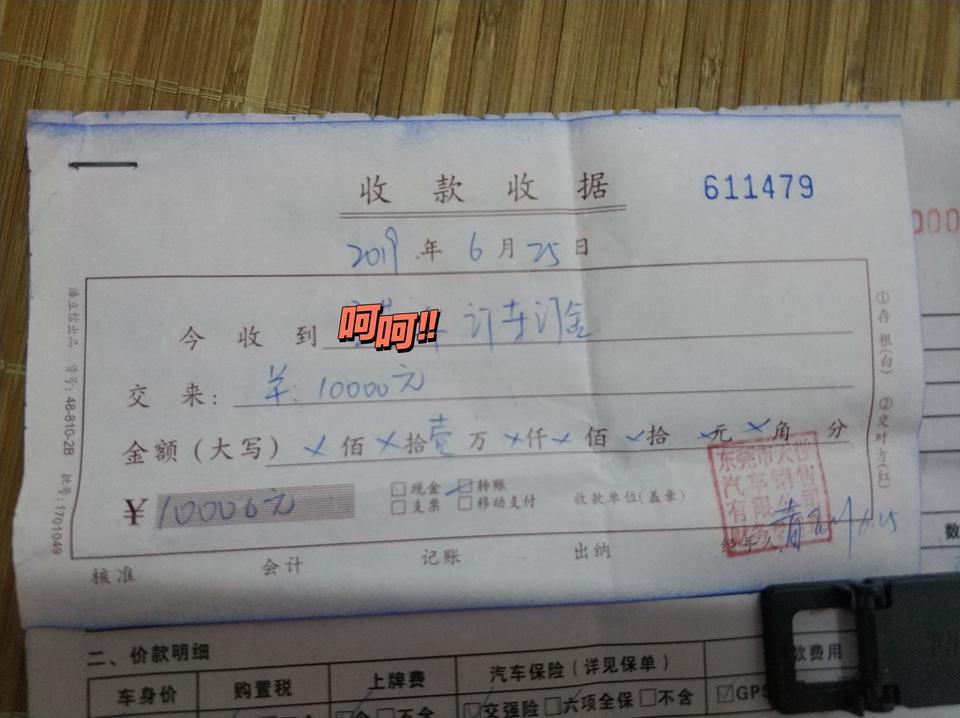 收款收据
611479
2019年6月25日
000
今收到 呵呵!! 订车订金
交来: 羊: 10000元
金额(大写) ×佰×拾壹万×仟×佰×拾×元×角 分
¥10000元
□现金 ☑转账
□支票 □移动支付
收款单位(盖章)
东莞市大
汽车销售
有限公司
经手人: 6.25
核准 会计 记账 出纳
货号: 48-810-2B 批号: 1701049
①存根(白) ②交对方(红)
数
二、价款明细
车身价 购置税 上牌费 汽车保险(详见保单) 费用
不含 ☑交强险 □六项全保 □不含 ☑GPS